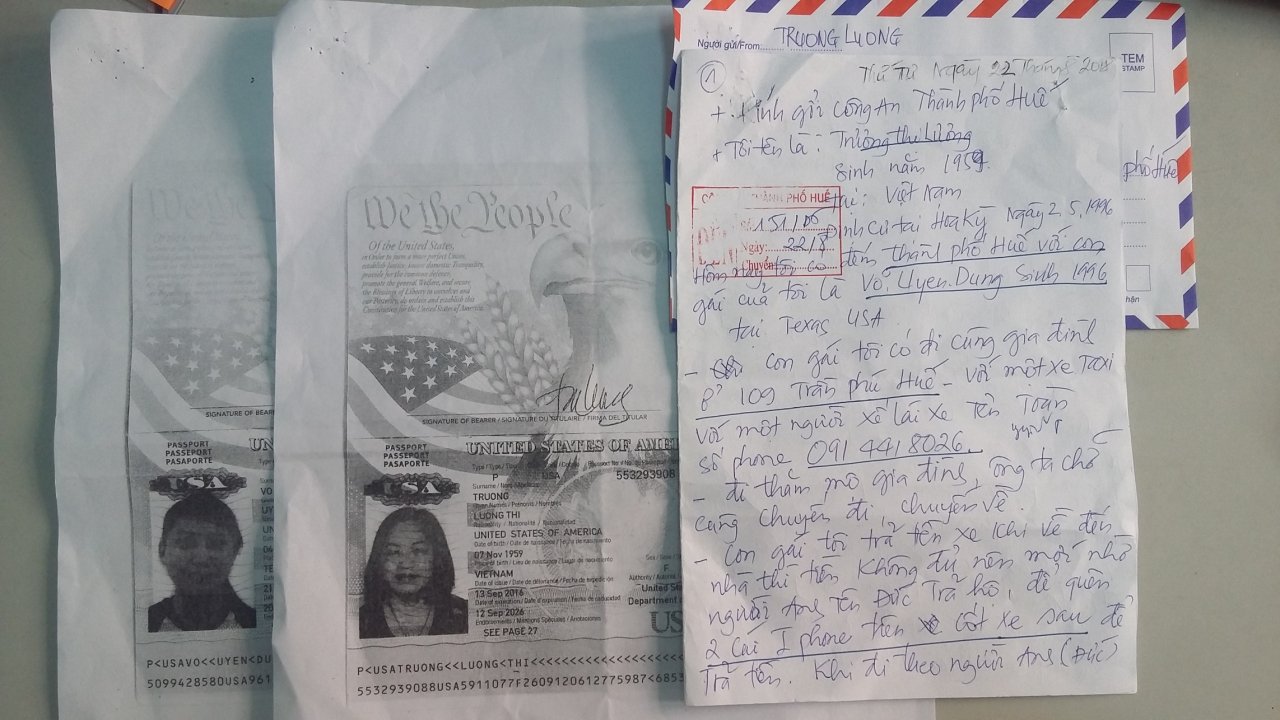 Người gửi/From
TRUONG LUONG
TEM
STAMP
phố Huế
1
Thứ Tư Ngày 22 Tháng 8
+ Kính gửi Công An Thành phố Huế
+ Tôi tên là: Trương thị Lương
Sinh năm 1959
tại: Việt Nam
Định cư tại Hoa Kỳ Ngày 2.5.1996
THÀNH PHỐ HUẾ
151/05
Ngày: 22/8
Chuyển
Hôm nay tôi có đến thành phố Huế với con
gái của tôi là Võ. Uyen. Dung Sinh 1996
tại. Texas USA
- con gái tôi có đi cùng gia đình
ở 109 Trần phú Huế - với một xe Taxi
với một người xế lái xe tên Toàn
số phone 091 441 8026.
- đi thăm mộ gia đình, ông ta chở
cùng chuyến đi chuyến về.
- con gái tôi trả tiền xe khi về đến
nhà thì tiền không đủ nên mới nhờ
người Anh tên Đức Trả hộ, để quên
2 cái Iphone trên cốt xe sau để
Trả tiền. Khi đi theo người Anh (Đức)
We the People
Of the United States,
in Order to form a more perfect Union,
establish Justice, insure domestic Tranquility,
provide for the common defence,
promote the general Welfare, and secure
the Blessings of Liberty to ourselves and
our Posterity, do ordain and establish this
Constitution for the United States of America.
SIGNATURE OF BEARER / SIGNATURE DU TITULAIRE / FIRMA DEL TITULAR
PASSPORT
PASSEPORT
PASAPORTE
UNITED STATES OF AMERI
USA
P USA 553293908
Surname / Nom / Apellidos
TRUONG
Given Names / Prénoms / Nombres
LUONG THI
Nationality / Nationalité / Nacionalidad
UNITED STATES OF AMERICA
Date of birth / Date de naissance / Fecha de nacimiento
07 Nov 1959
Place of birth / Lieu de naissance / Lugar de nacimiento
VIETNAM
F
Date of issue / Date de délivrance / Fecha de expedición
13 Sep 2016
United St
Date of expiration / Date d'expiration / Fecha de caducidad
12 Sep 2026
Department
Endorsements / Mentions Spéciales / Anotaciones
SEE PAGE 27
US
P<USATRUONG<<LUONG<THI<<<<<<<<<<<<<<<<
5532939088USA5911077F2609120612775987<6853
SIGNATURE OF BEAR
PASSPORT
PASSEPORT
PASAPORTE
UN
USA
VO
UY
UN
P<USAVO<<UYEN<DU
5099428580USA961